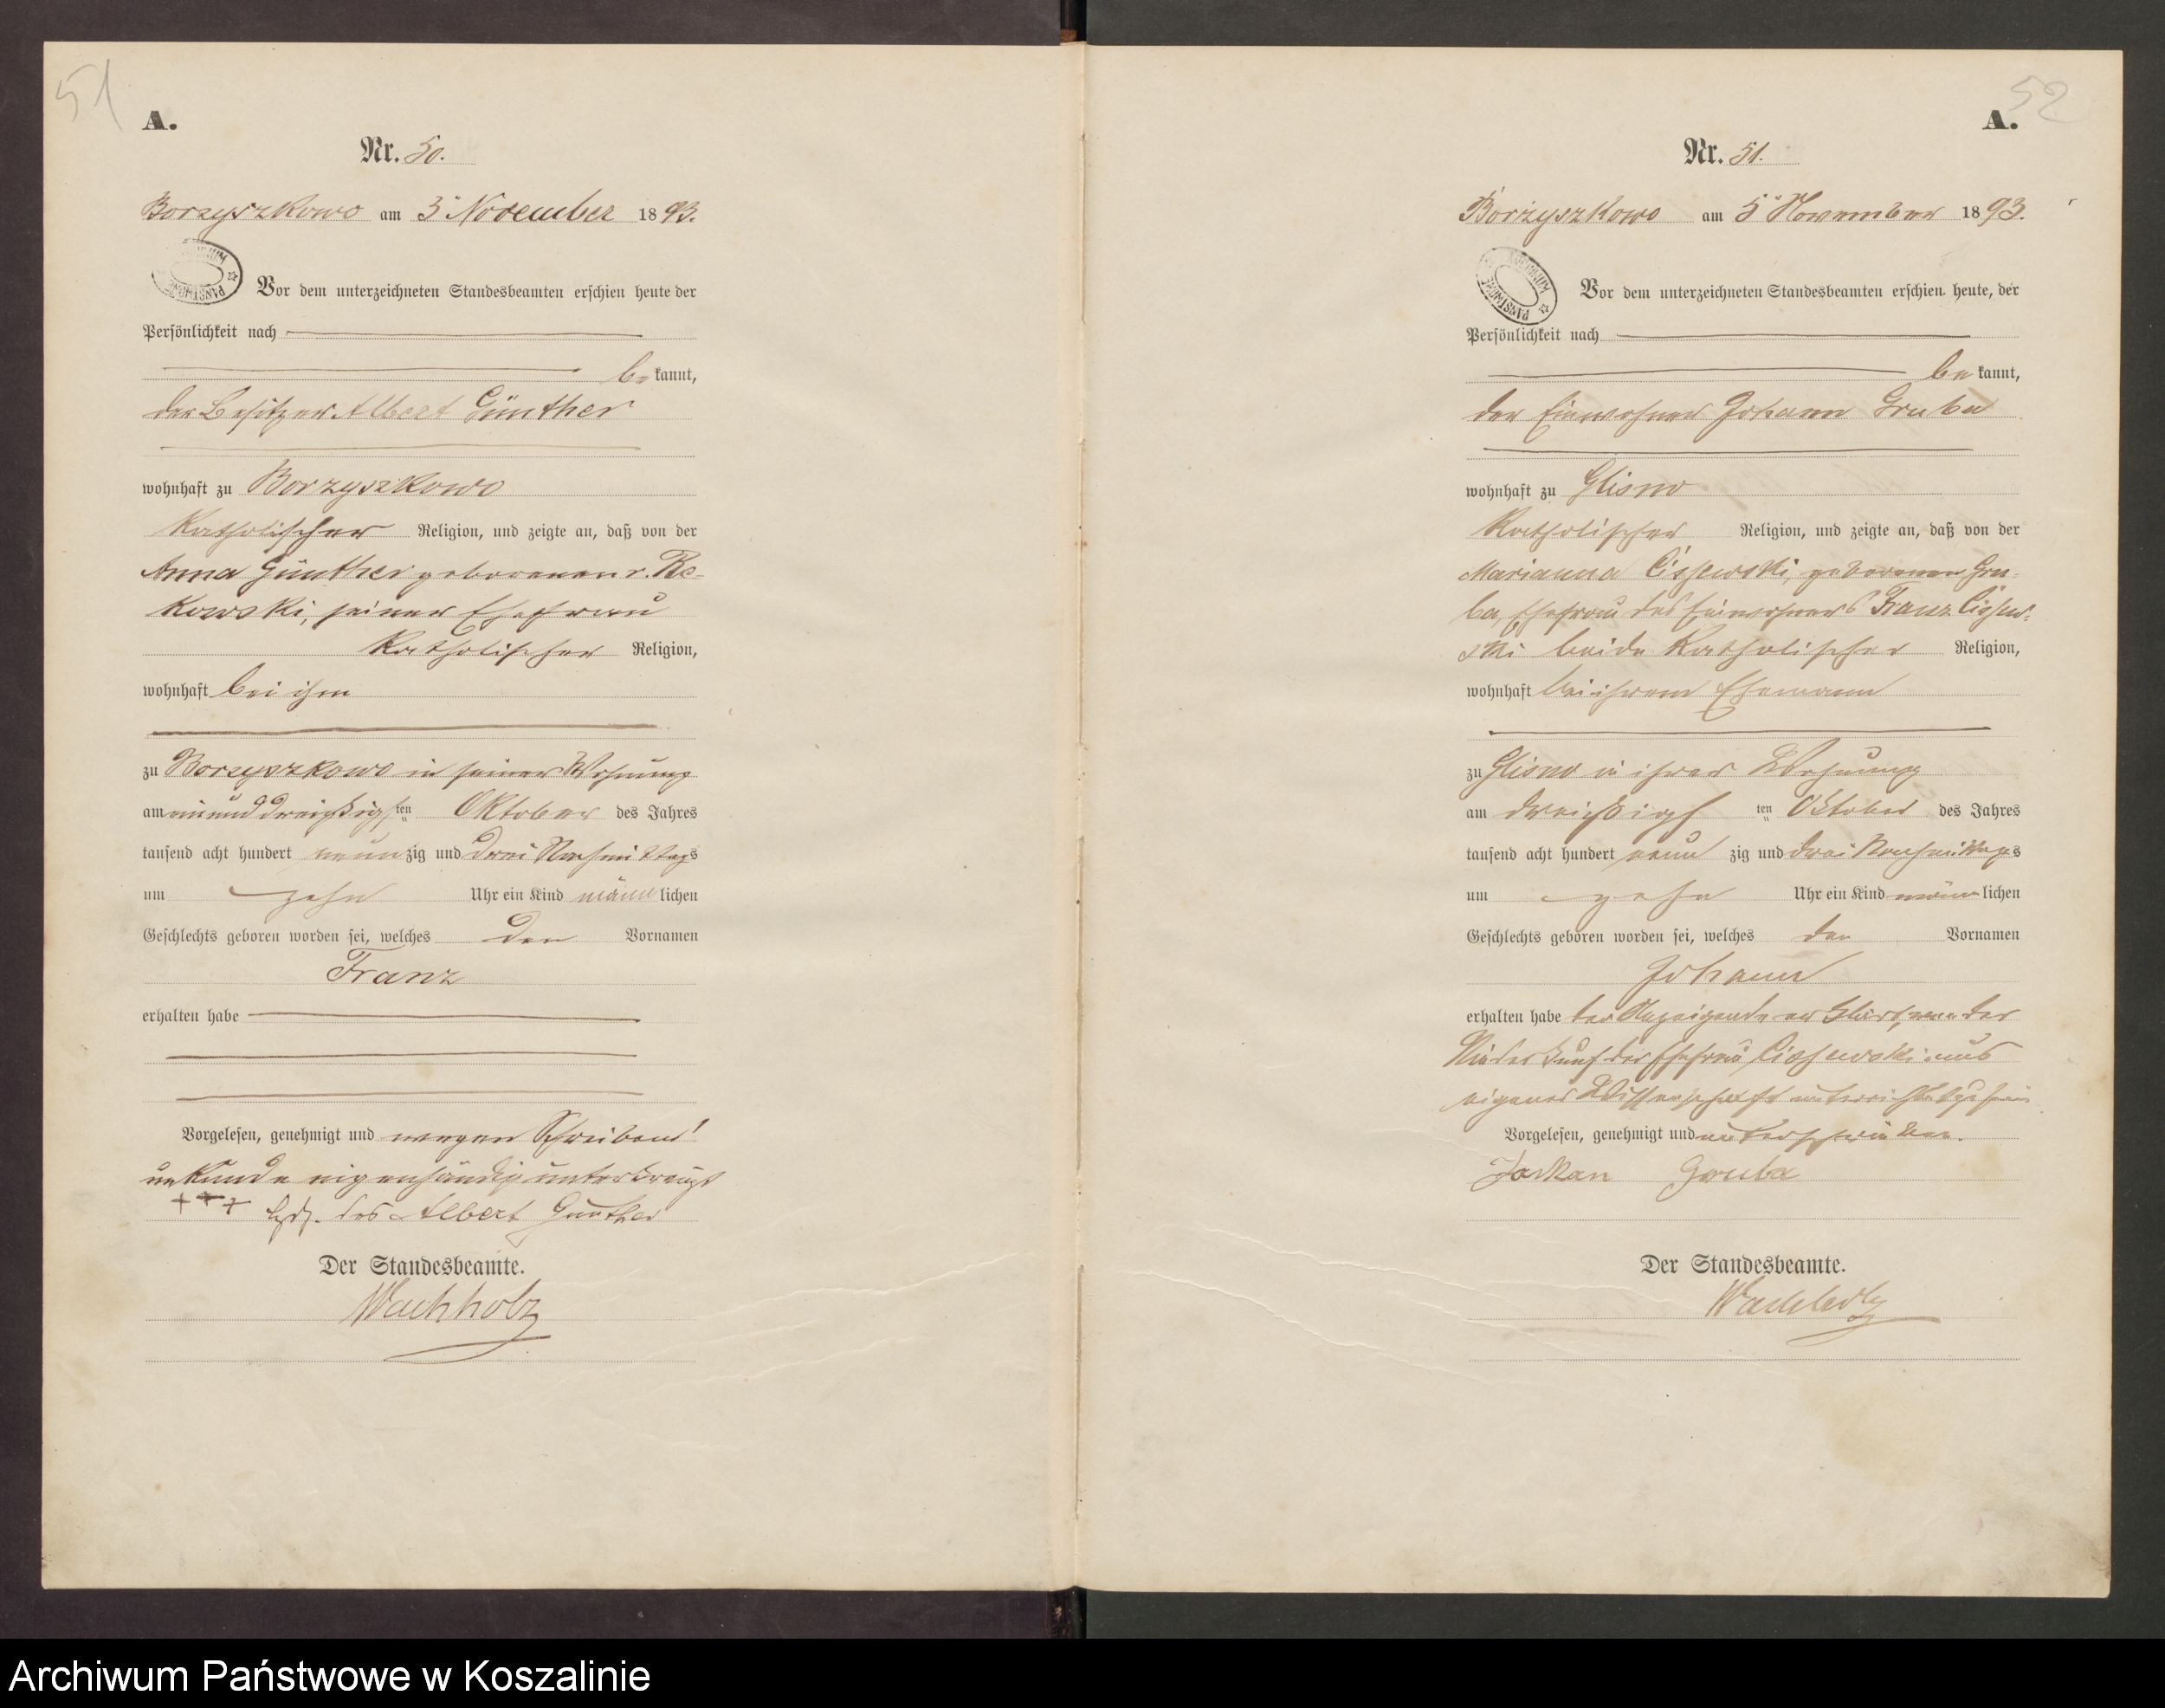 51
A.
Nr. 50.
Borzyszkowo am 3 November 1893.
Vor dem unterzeichneten Standesbeamten erschien heute der
Persönlichkeit nach
be kannt,
der Besitzer Albert Günther
wohnhaft zu Borzyszkowo
katholischer Religion, und zeigte an, daß von der
Anna Günther geborenen v. Re-
kowski, seiner Ehefrau
katholischer Religion,
wohnhaft bei ihm
zu Borzyszkowo in seiner Wohnung
am einunddreißigsten Oktober des Jahres
tausend acht hundert neunzig und drei Nachmittags
um zehn Uhr ein Kind männlichen
Geschlechts geboren worden sei, welches den Vornamen
Franz
erhalten habe
Vorgelesen, genehmigt und wegen Schreibens
unkunde eigenhändig unterkreuzt
+++ Hdz. des Albert Günther
Der Standesbeamte.
Wachholz
52
A.
Nr. 51.
Borzyszkowo am 5 November 1893.
Vor dem unterzeichneten Standesbeamten erschien heute, der
Persönlichkeit nach
be kannt,
der Einwohner Johann Gruba
wohnhaft zu Glisno
katholischer Religion, und zeigte an, daß von der
Marianna Cissewski, geborenen Gru-
ba, Ehefrau des Einwohners Franz Cissew-
ski beide katholischer Religion,
wohnhaft bei ihrem Ehemann
zu Glisno in ihrer Wohnung
am dreißigsten Oktober des Jahres
tausend acht hundert neun zig und drei Nachmittags
um zehn Uhr ein Kind männlichen
Geschlechts geboren worden sei, welches den Vornamen
Johann
erhalten habe der Anzeigende erklärt, von der
Niederkunft der Ehefrau Cissewski aus
eigener Wissenschaft unterrichtet zu sein
Vorgelesen, genehmigt und unterschrieben.
Johan Gruba
Der Standesbeamte.
Wachholz
Archiwum Państwowe w Koszalinie